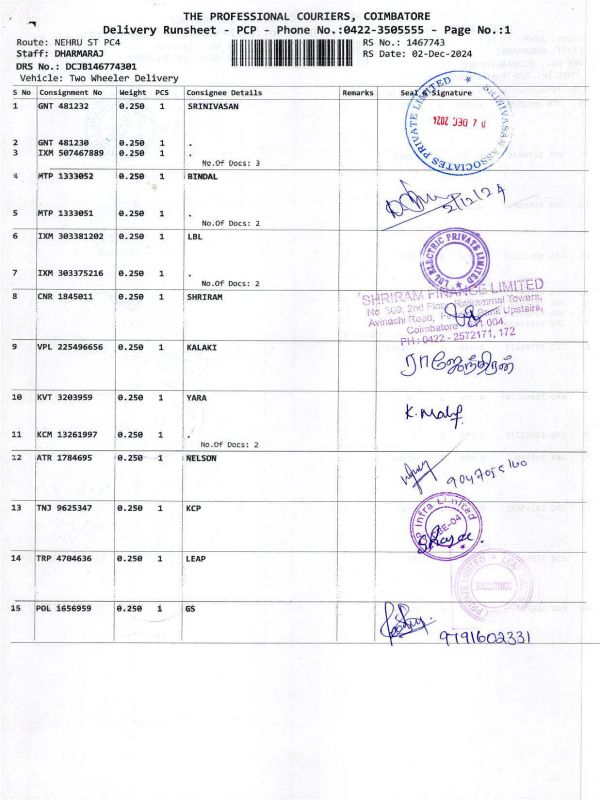 THE PROFESSIONAL COURIERS, COIMBATORE
Delivery Runsheet - PCP - Phone No.:0422-3505555 - Page No.:1
Route: NEHRU ST PC4 RS No.: 1467743
Staff: DHARMARAJ RS Date: 02-Dec-2024
DRS No.: DCJB146774301
Vehicle: Two Wheeler Delivery
S No Consignment No Weight PCS Consignee Details Remarks Seal & Signature
1 GNT 481232 0.250 1 SRINIVASAN
SRINIVASAN ASSOCIATES PRIVATE LIMITED
DEC 2024
2 GNT 481230 0.250 1 .
3 IXM 507467889 0.250 1 .
No.Of Docs: 3
4 MTP 1333052 0.250 1 BINDAL
2/12/24
5 MTP 1333051 0.250 1 .
No.Of Docs: 2
6 IXM 303381202 0.250 1 LBL
LBL ELECTRIC PRIVATE LIMITED
7 IXM 303375216 0.250 1 .
No.Of Docs: 2
8 CNR 1845011 0.250 1 SHRIRAM
SHRIRAM FINANCE LIMITED
2nd Floor, Towers,
Avinashi Road, Bank Upstairs,
Coimbatore 004.
PH : 0422 - 2572171, 172
9 VPL 225496656 0.250 1 KALAKI
ராஜேந்திரன்
10 KVT 3203959 0.250 1 YARA
11 KCM 13261997 0.250 1 .
No.Of Docs: 2
12 ATR 1784695 0.250 1 NELSON
13 TNJ 9625347 0.250 1 KCP
Infra Limited
14 TRP 4704636 0.250 1 LEAP
PRIVATE LIMITED
COIMBATORE
15 POL 1656959 0.250 1 GS
9791602331